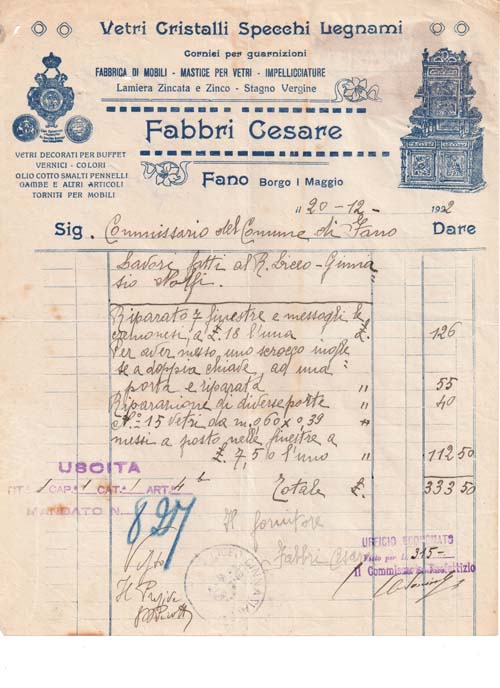 Vetri Cristalli Specchi Legnami
Cornici per guarnizioni
FABBRICA DI MOBILI - MASTICE PER VETRI - IMPELLICCIATURE
Lamiera Zincata e Zinco - Stagno Vergine
Fabbri Cesare
VETRI DECORATI PER BUFFET
VERNICI - COLORI
OLIO COTTO SMALTI PENNELLI
GAMBE E ALTRI ARTICOLI
TORNITI PER MOBILI
Fano Borgo I Maggio
li 20-12- 1922
Sig. Commissario del Comune di Fano Dare
Lavore fatti al R. Liceo-Ginna
sio Nolfi.
Riparato 7 finestre e messagli le
a £ 18 l'una £. 126
Per aver messo uno scrocco ingle
se a doppia chiave, ad una
porta e riparata " 55
Riparazione di diverse porte " 40
N.o 15 vetri da m. 0,60 x 0,39 "
messi a posto nelle finestre a
£ 7,50 l'uno " 112 50
Totale £. 333 50
USCITA
TIT. 1 CAP. 1 CAT. 1 ART. 4 b
MANDATO N. 827
Il fornitore
Fabbri Cesare
Visto
Il Preside
UFFICIO ECONOMATO
Visto per L. 315-
Il Commissario Prefettizio